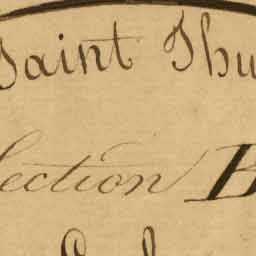 Saint Thu
lection B